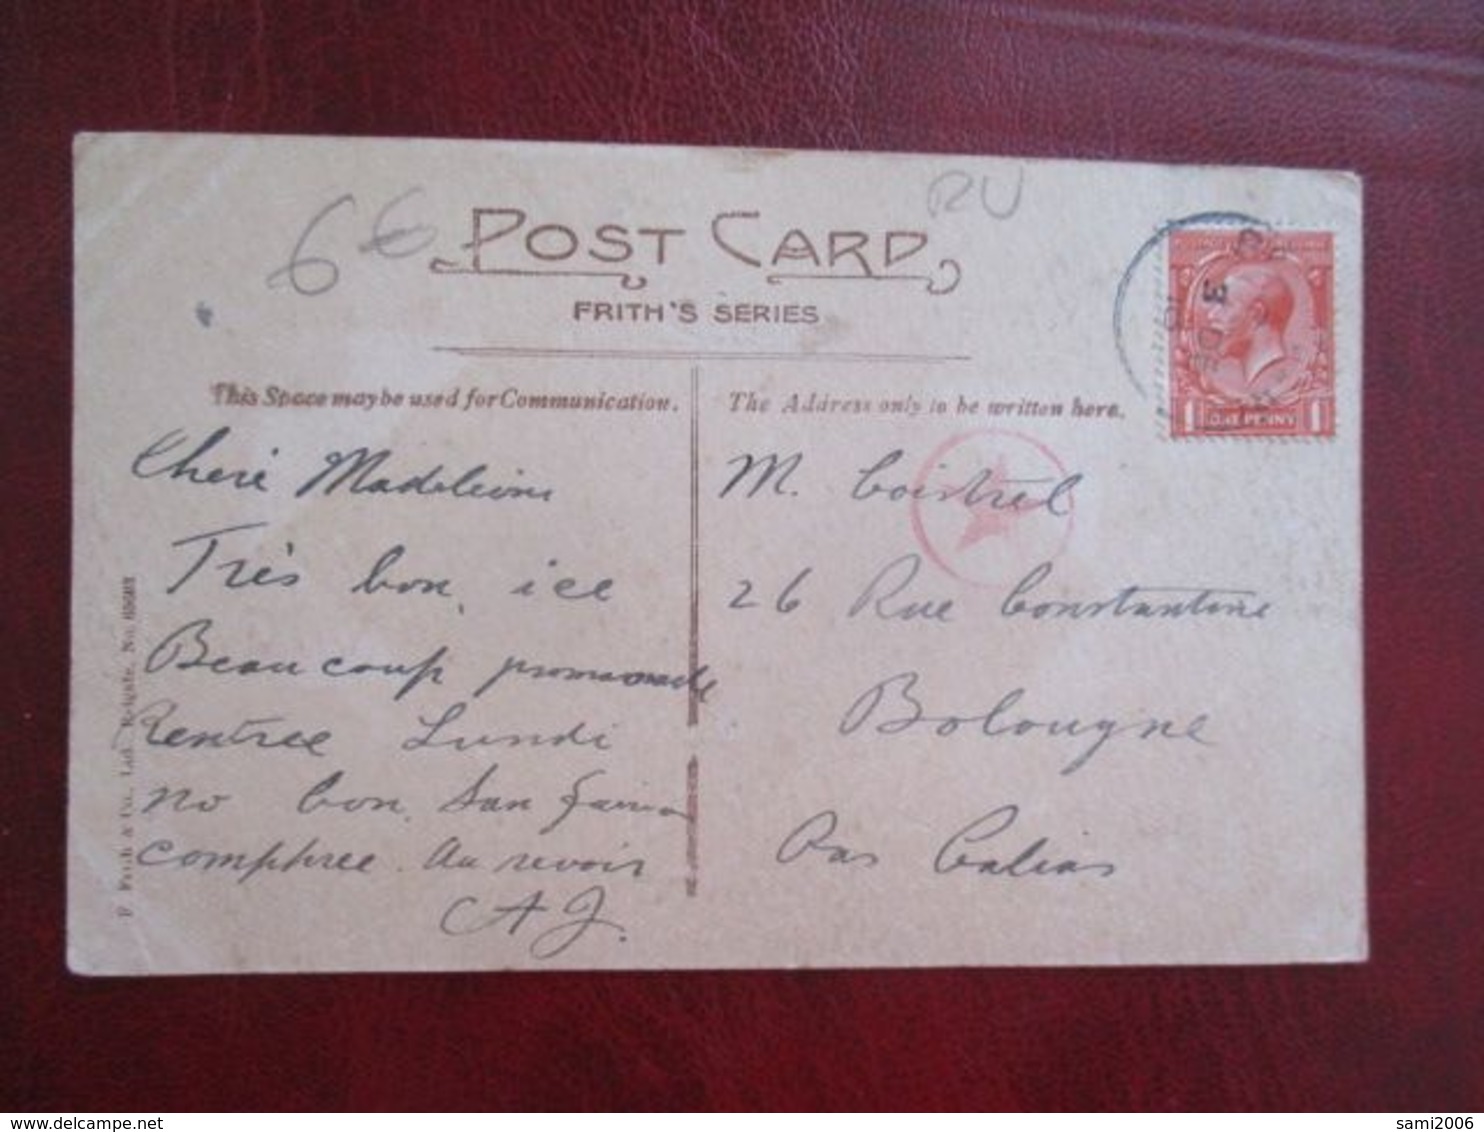 6€
RU
POST CARD
FRITH'S SERIES
This Space may be used for Communication.
The Address only to be written here.
ONE PENNY
1 1
3 DE
Cheri Madeleine
Très bon, ice
Beaucoup promenade
Rentree Lundi
no bon, San
comphree. Au revoir
A J.
M. Coistrel
26 Rue Constantine
Bolougne
Pas Calias
F Frith & Co., Ltd., Reigate. No.
sami2006